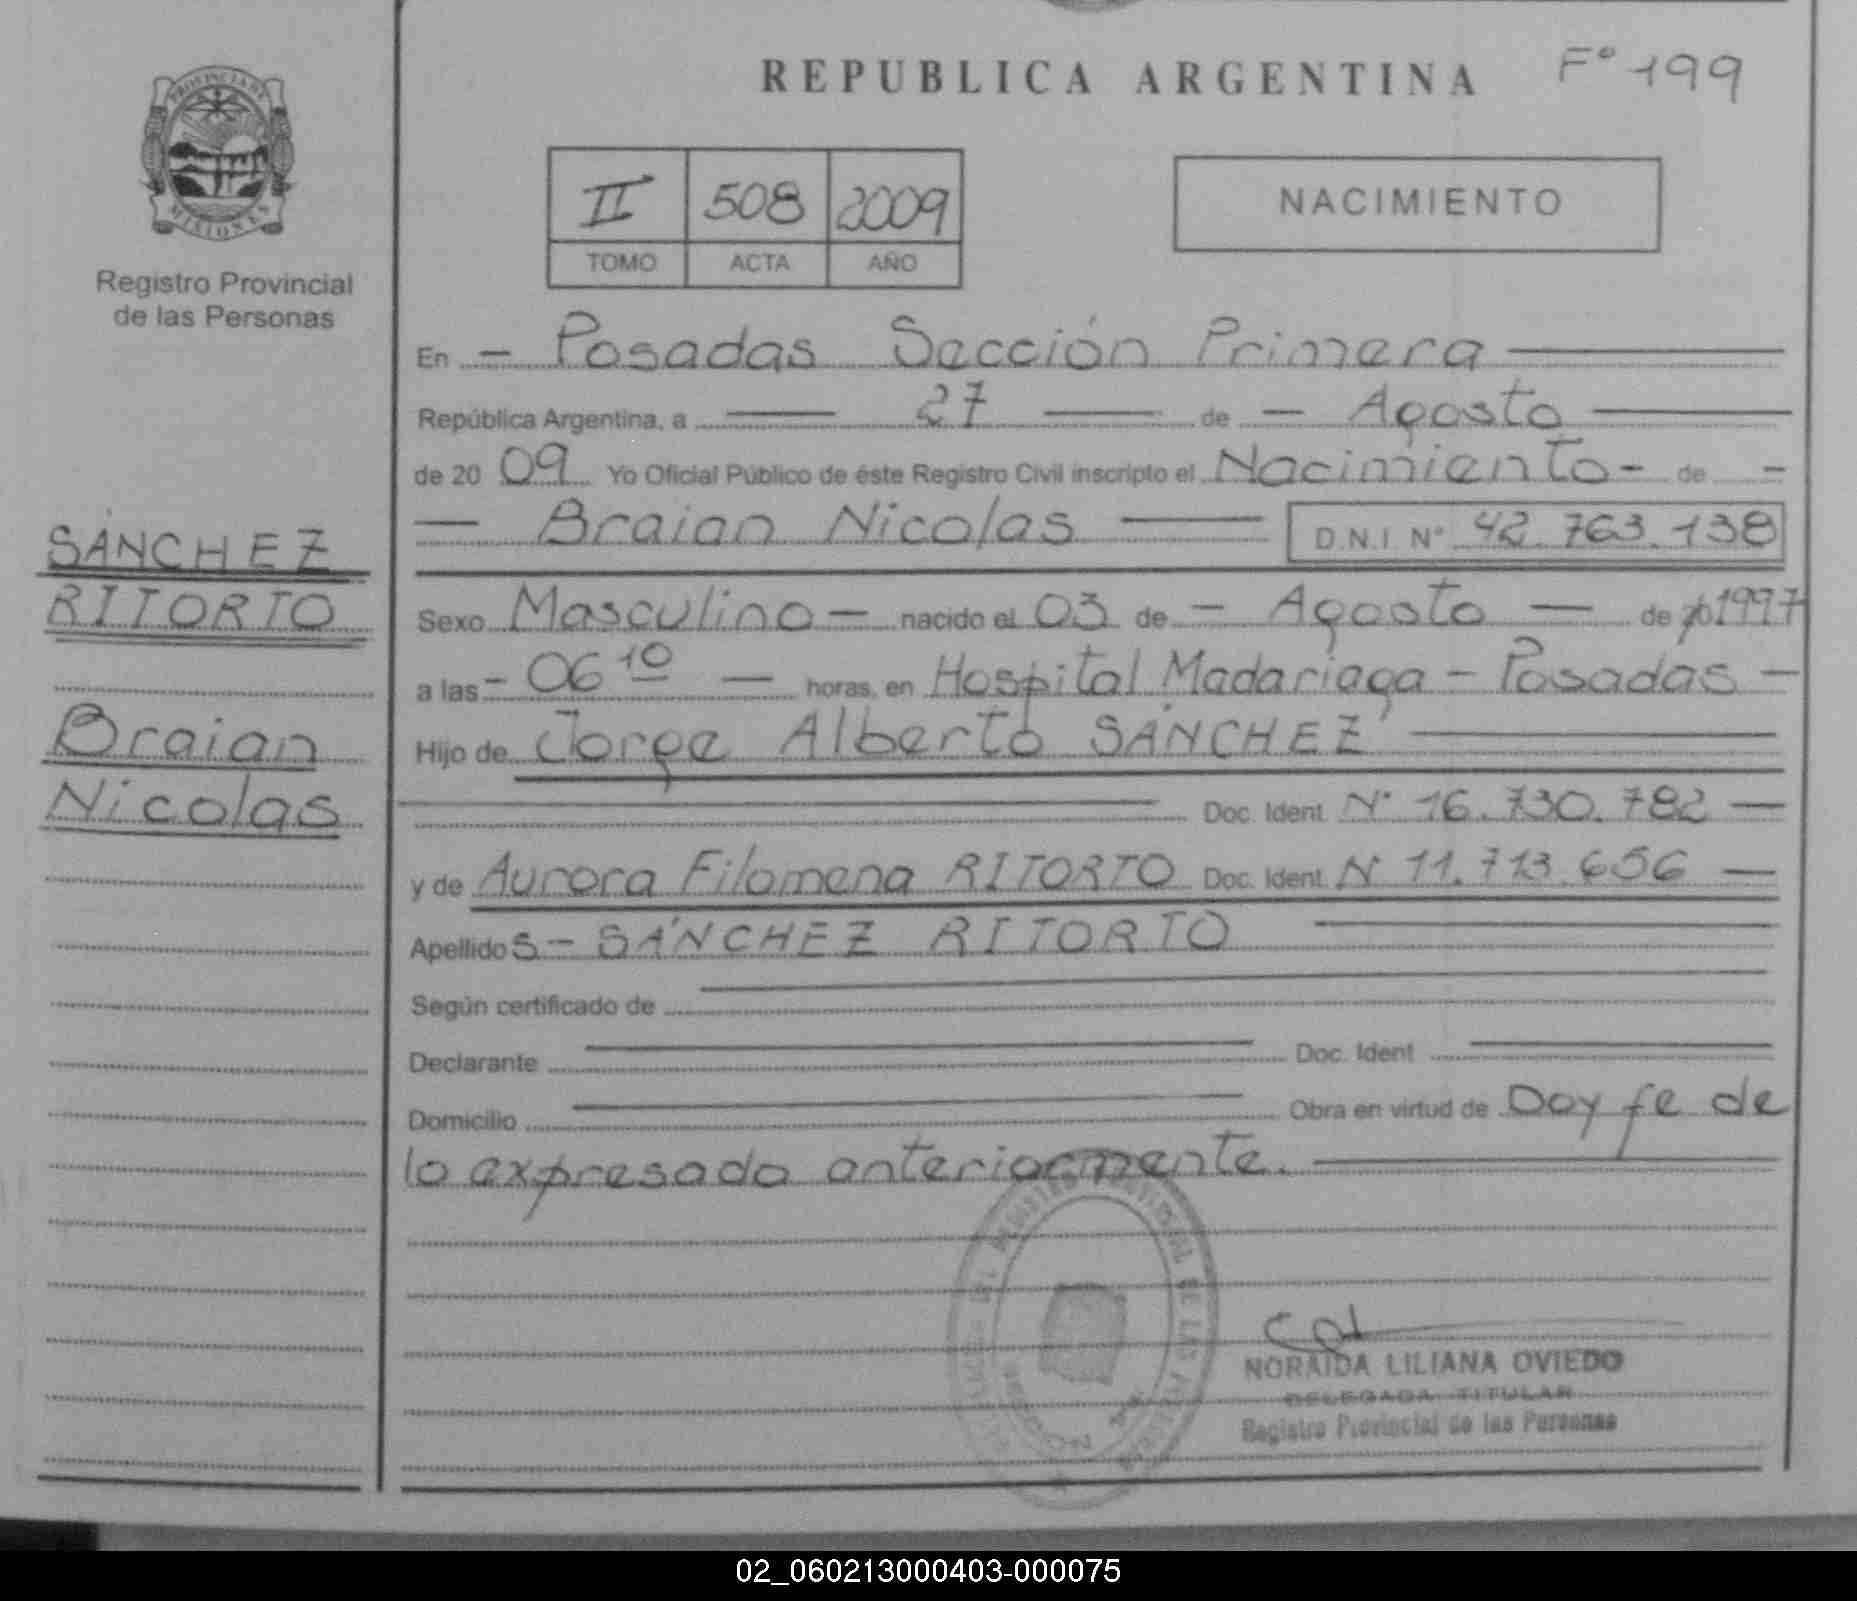 PROVINCIA DE
MISIONES
Registro Provincial
de las Personas
SÁNCHEZ
RITORTO
Braian
Nicolas
REPUBLICA ARGENTINA Fº 199
II 508 2009
TOMO ACTA AÑO
NACIMIENTO
En - Posadas Sección Primera
República Argentina, a 27 de - Agosto
de 20 09 Yo Oficial Público de éste Registro Civil inscripto el Nacimiento - de -
Braian Nicolas D.N.I. Nº 42.763.138
Sexo Masculino - nacido el 03 de - Agosto - de 1997
a las - 06 10 - horas, en Hospital Madariaga - Posadas -
Hijo de Jorge Alberto SÁNCHEZ
Doc. Ident. Nº 16.730.782 -
y de Aurora Filomena RITORTO Doc. Ident. N 11.713.656 -
Apellidos - SÁNCHEZ RITORTO
Según certificado de
Declarante Doc. Ident
Domicilio Obra en virtud de Doy fe de
lo expresado anteriormente.
NORAIDA LILIANA OVIEDO
DELEGADA TITULAR
Registro Provincial de las Personas
02_060213000403-000075